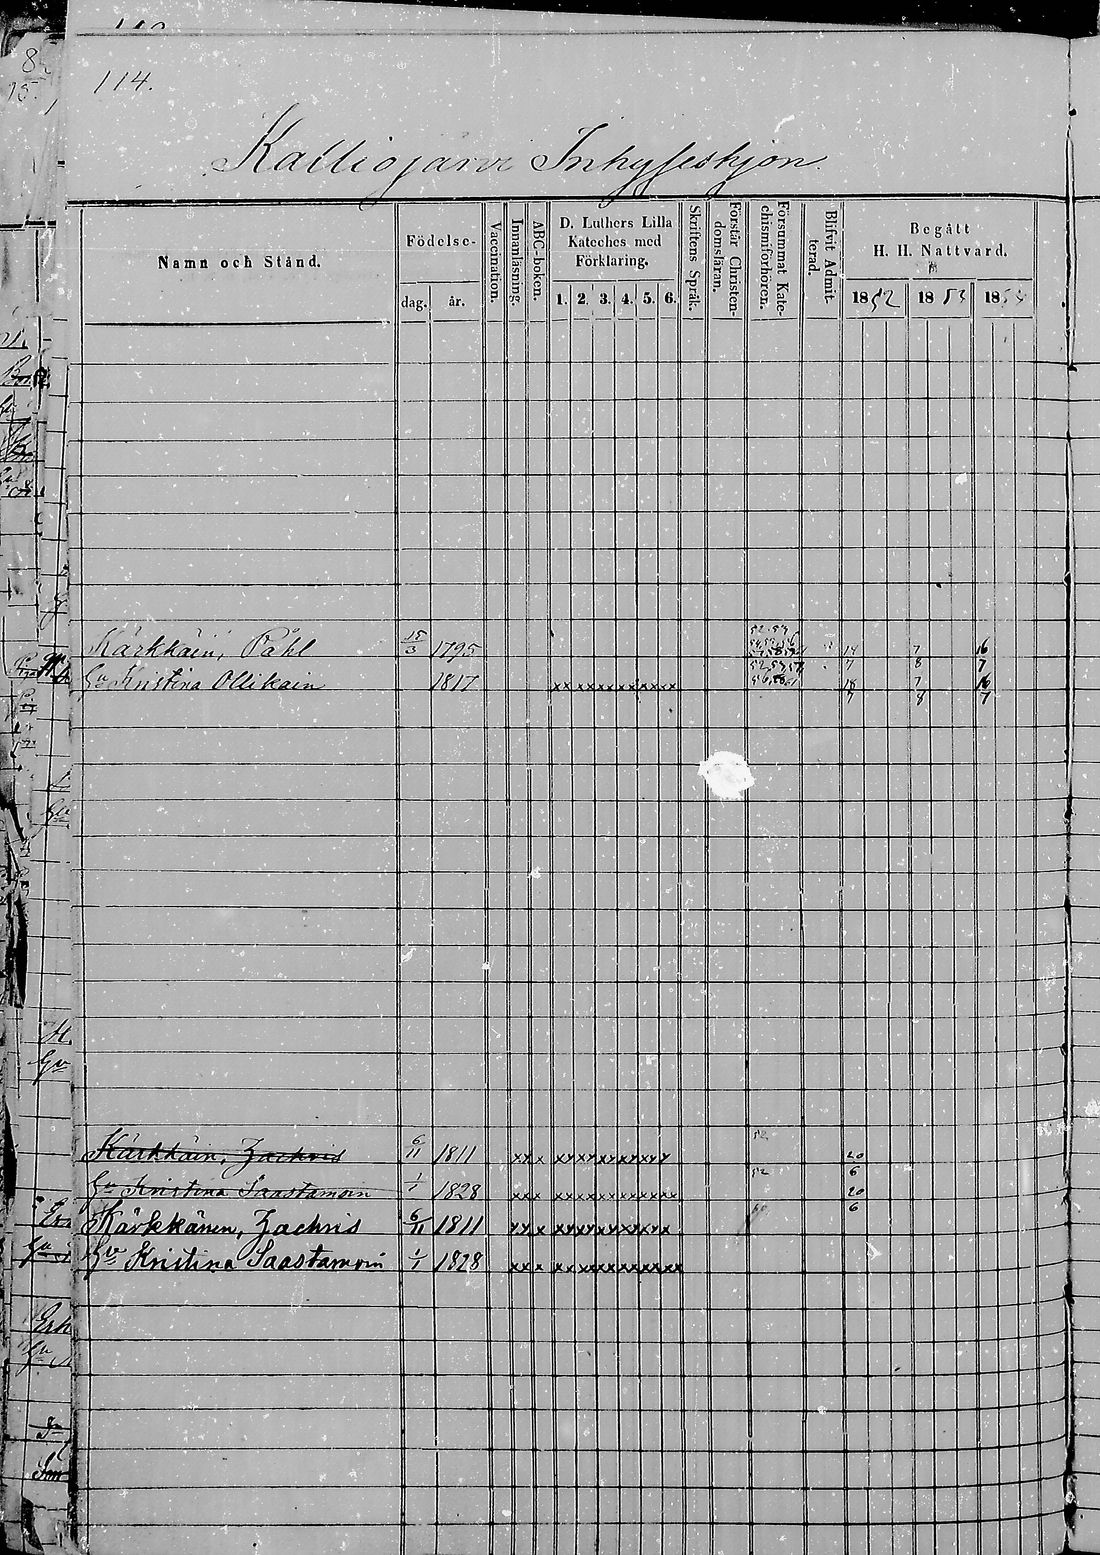 114.
Kalliojärvi Inhyseshjon.
Namn och Stånd.
Födelse-
dag. år.
Vaccination.
Innanläsning.
ABC-boken.
D. Luthers Lilla
Kateches med
Förklaring.
1. 2. 3. 4. 5. 6.
Skriftens Språk.
Förstår Christen-
domsläran.
Försummat Kate-
chismiförhören.
Blifvit Admit-
terad.
Begått
H. H. Nattvard.
1852 1853 1854
Kärkkäin, Påhl 15/3 1795 18 7 16
7 8 7
Hu Kristina Ollikain 1817 xx xx xx xx xx xx 18 7 16
7 8 7
Kärkkäin, Zachris 6/11 1811 xx x xx xx xx xx xx x 52 20
6
Hu Kristina Saastamoin 1/1 1828 xx x xx xx xx xx xx xx 52 20
6
Kärkkänen, Zachris 6/11 1811 xx x xx xx xx xx xx x
Hu Kristina Saastamoin 1/1 1828 xx x xx xx xx xx xx xx